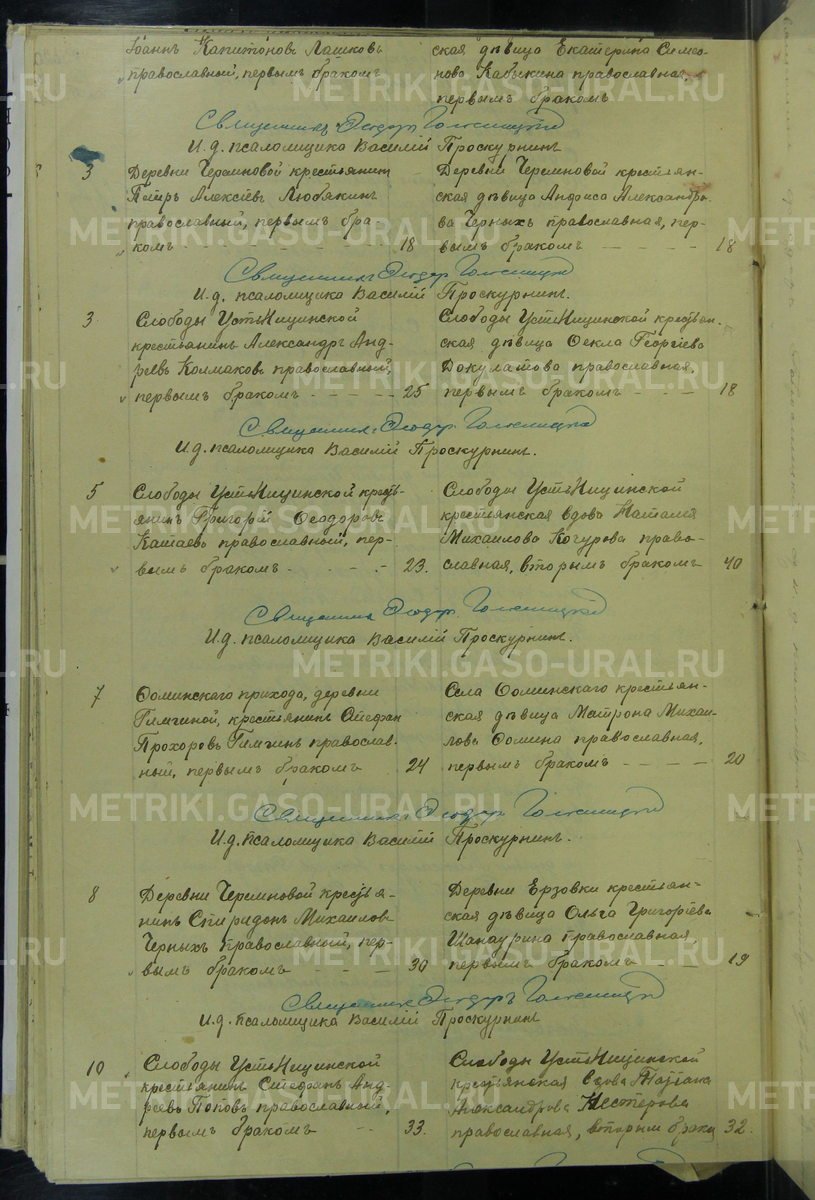 Іоаннъ Капитоновъ Лашковъ
православный, первымъ бракомъ
ская дѣвица Екатерина Симео-
нова Кабыкина православная,
первымъ бракомъ
Священникъ Ѳеодоръ
И.д. псаломщика Василій Проскурнинъ
3
Деревни Черемновой крестьянинъ
Петръ Алексѣевъ Любякинъ
православный, первымъ бра-
комъ - - - - - 18
Деревни Черемновой крестьян-
ская дѣвица Анфиса Александро-
ва Черныхъ православная, пер-
вымъ бракомъ - - - - 18
Священникъ Ѳеодоръ
И.д. псаломщика Василій Проскурнинъ.
3.
Слободы УстьНицинской
крестьянинъ Александръ Анд-
реевъ Колмаковъ православный,
первымъ бракомъ - - - - 25
Слободы УстьНицинской крестьян-
ская дѣвица Ѳекла Георгіева
Докулатова православная,
первымъ бракомъ - - - 18
Священникъ Ѳеодоръ
И.д. псаломщика Василій Проскурнинъ.
5
Слободы УстьНицинской кресть-
янинъ Григорій Ѳеодоровъ
Катаевъ православный, пер-
вымъ бракомъ - - - - 23.
Слободы УстьНицинской
крестьянская вдова Наталія
Михаилова Кочурова право-
славная, вторымъ бракомъ 40
Священникъ Ѳеодоръ
И.д. псаломщика Василій Проскурнинъ.
7
Ѳоминскаго прихода, деревни
крестьянинъ Стефанъ
Прохоровъ православ-
ный, первымъ бракомъ 24
Села Ѳоминскаго крестьян-
ская дѣвица Матрона Михаи-
лова Ѳомина православная,
первымъ бракомъ - - - - 20
Священникъ Ѳеодоръ
И.д. псаломщика Василій Проскурнинъ.
8
Деревни Черемновой крестья-
нинъ Спиридонъ Михаиловъ
Черныхъ православный, пер-
вымъ бракомъ - - - - 30
Деревни Ерзовки крестьян-
ская дѣвица Ольга Григоріева
Шанаурина православная,
первымъ бракомъ - - 19
Священникъ Ѳеодоръ
И.д. псаломщика Василій Проскурнинъ
10
Слободы УстьНицинской
крестьянинъ Стефанъ Анд-
реевъ Поповъ православный,
первымъ бракомъ - - 33.
Слободы УстьНицинской
крестьянская вдова Татіана
Александрова Нестерова
православная, вторым брако 32.
METRIKI.GASO-URAL.RU